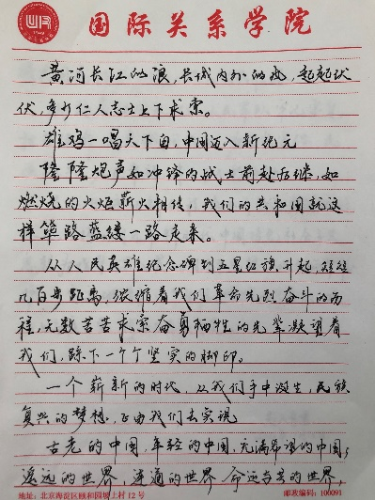 国际关系学院
黄河长江的浪，长城内外的风，起起伏
伏，多少仁人志士上下求索。
雄鸡一唱天下白，中国迈入新纪元
隆隆炮声如冲锋的战士前赴后继，如
燃烧的火炬薪火相传，我们的共和国就这
样筚路蓝缕一路走来。
从人民英雄纪念碑到五星红旗升起，短短
几百步距离，浓缩着我们革命先烈奋斗的历
程，无数苦苦求索奋勇牺牲的先辈凝望着
我们，踩下一个个坚实的脚印。
一个崭新的时代，从我们手中诞生，民族
复兴的梦想，正由我们去实现
古老的中国，年轻的中国，充满希望的中国；
遥远的世界，连通的世界，命运与共的世界，
地址：北京海淀区颐和园坡上村12号 邮政编码：100091